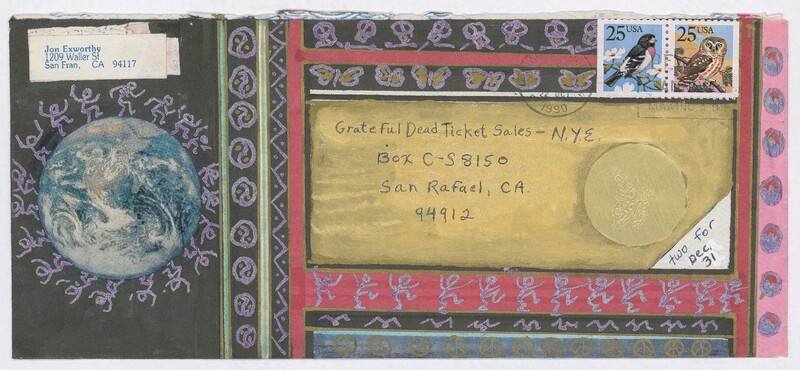 Jon Exworthy
1209 Waller St
San Fran, CA 94117
25 USA
25 USA
1990
Grateful Dead Ticket Sales - N.Y.E.
Box C-S 8150
San Rafael, CA.
94912
two for
Dec.
31